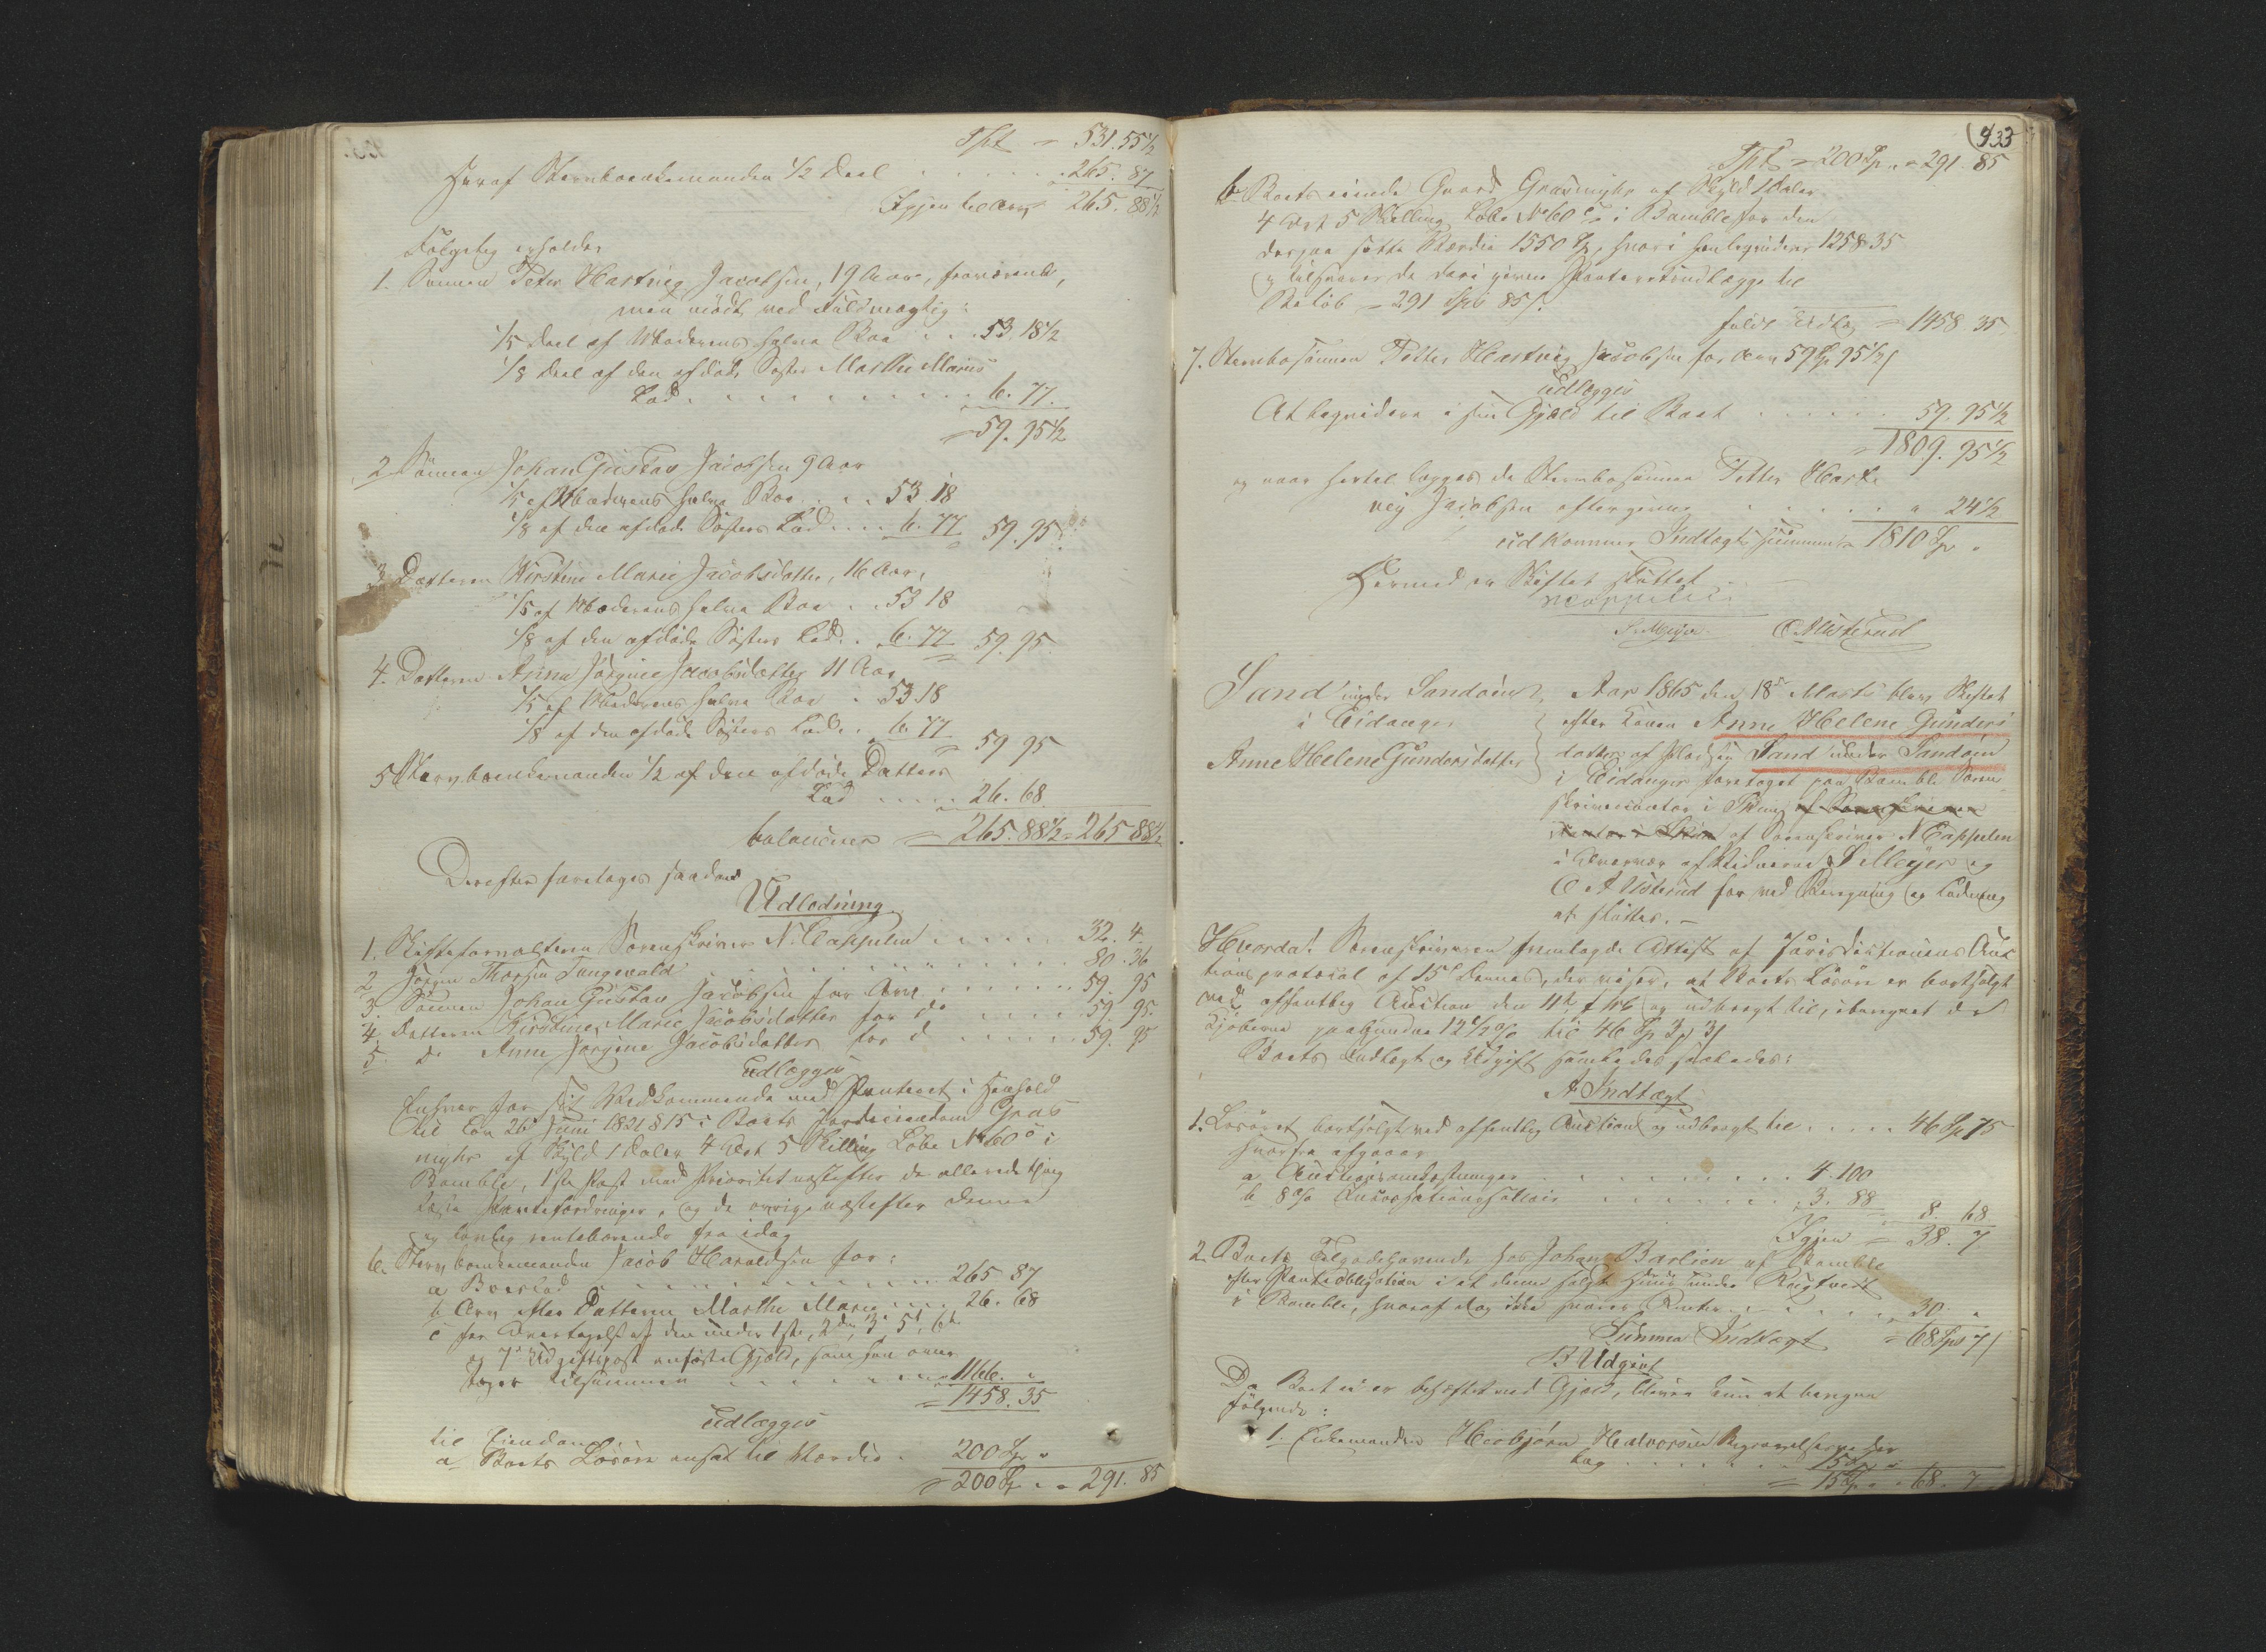 Tpt = 531. 55 1/2
Heraf Stervboenkemanden 1/2 Deel . . . . . 265. 87
Igjen til Arv 265. 88 1/2
Følgelig erholder
1. Sønnen Peter Hartvig Jacobsen, 19 Aar, fraværende,
men mødt ved Fuldmægtig:
1/5 Deel af Moderens halve Boe . . . 53. 18 1/2
1/8 Deel af den afdøde Søster Marthe Maries
Lod . . . . . . . . . . 6. 77.
= 59. 95 1/2
2 Sønnen Johan Gustav Jacobsen 9 Aar
1/5 af Moderens halve Boe . . . 53. 18
1/8 af den afdøde Søsters Lod . . . 6. 77 59. 95
3 Datteren Kirstine Marie Jacobsdatter, 16 Aar,
1/5 af Moderens halve Boe . . 53 18
1/8 af den afdøde Søsters Lod . . 6. 77 59. 95.
4. Datteren Anne Jørgine Jacobsdatter 11 Aar
1/5 af Moderens halve Boe . 53 18
1/8 af den afdøde Søsters Lod . . 6. 77 59 95
5 Stervboenkemanden 1/2 af den afdøde Datters
Lod . . . . 26. 68
balancerer = 265. 88 1/2 = 265 88 1/2
Derefter foretoges saadan
Udlodning
1. Skifteforvalteren Sorenskriver N. Cappelen . . . . . 32. 4.
2 Jørgen Thorsen Tangevald . . . . . . . . 80. 36
3. Sønnen Johan Gustav Jacobsen for Arv . . . . . . 59. 95
4. Datteren Kirstine Marie Jacobsdatter for do . . . . 59. 95.
5. do Anne Jørgine Jacobsdatter for d . . . . . 59. 95
Udlægges
Enhver for sit Vedkommende med Panteret i Henhold
til Lov 26 Juni 1821 § 15 i Boets Jordeiendom Gras
myhr af Skyld 1 Daler 4 Ort 5 Skilling Løbe No 60 i
Bamble, 1ste Post med Prioritet næstefter de allerede thing
læste Pantefordringer, og de øvrige næstefter denne
og lovlig rentebærende fra idag
6. Stervboenkemanden Jacob Haraldsen for:
a Boeslod . . . . . . . . . . 265 87
b Arv efter Datteren Marthe Marie . . . . 26. 68
c for Overtagelse af den under 1ste, 2den, 3, 5t, 6te
og 7de Udgiftspost anførte Gjæld, som han over
tager tilsammen . . . . . . . . 1166. "
= 1458. 35
Udlægges
til Eiendom
a Boets Løsøre ansat til Værdie . 200 Sp "
= 200 Sp . = 291. 85
433
Tpt = 200 Sp. = 291. 85
b Boets eiende Gaard Grasmyhr af Skyld 1 Daler
4 Ort 5 Skilling Løbe No 60 i Bamble for den
derpaa satte Værdie 1550 Sp, hvori han liqviderer 1258 35
og tilsvarer de deri givne Panteretsudlægge til
Beløb = 291 Spd 85 s.
fuldt Udlæg = 1458. 35
7. Stervbosønnen Petter Hartvig Jacobsen for Arv 59 Sp. 95 1/2 s
Udlægges
At liqvidere i sin Gjæld til Boet . . . . . . 59. 95 1/2
= 1809. 95 1/2
og naar hertil lægges de Stervbosønnen Petter Hart
vig Jacobsen eftergivne . . . . . . " 24 1/2
udkommer Indtægtssummen = 1810 Sp "
Hermed er Skiftet sluttet
NCappelen
S. Meyer. C A Usterud
Sand under Sandøen
i Eidanger
Anne Helene Gundersdatter
Aar 1865 den 18de Marts blev Skiftet
efter Konen Anne Helene Gunders
datter af Pladsen Sand under Sandøen
i Eidanger foretaget paa Bamble Soren
skrivercontor i Skien af Sorenskriver
contor i Skien af Sorenskriver N Cappelen
i Overvær af Vidnerne S. Meyer og
C A Usterud for ved Beregning og Lodning
at sluttes. —
Hvorda! Sorenskriveren fremlagde Attest af Jurisdictionens Auc
tions protocol af 15de dennes, der viser, at Boets Løsøre er bortsolgt
ved offentlig Auction den 11te f M og udbragt til, iberegnet de
Kjøberne paalignede 12 1/2 %
Boets Indtægt og Udgift samledes saaledes:
A Indtægt
1. Løsøret bortsolgt ved offentlig Auction og udbragt til . . . . . 46 Sp 75
hvorfra afgaaer
a. Auctionsomkostninger . . . . . . . . . 4. 100
b 8 % Incassationssallair . . . . . . 3. 88 8. 68
Igjen = 38. 7
2. Boets Tilgodehavende hos Johan Barlien af Bamble
efter Pantobligation i et denne solgt Huus under Rugtvedt
i Bamble, hvoraf dog ikke svares Renter . . . . . . 30. "
Summa Indtægt = 68 Spd 7 s
B Udgivt
Da Boet ei er behæftet med Gjæld, bliver kun at beregne
følgende:
1. Enkemanden Herbjørn Halvorsens Begravelsesudlæg
læg . . . . . . 15 Sp "
= 15 Sp " = 68. 7